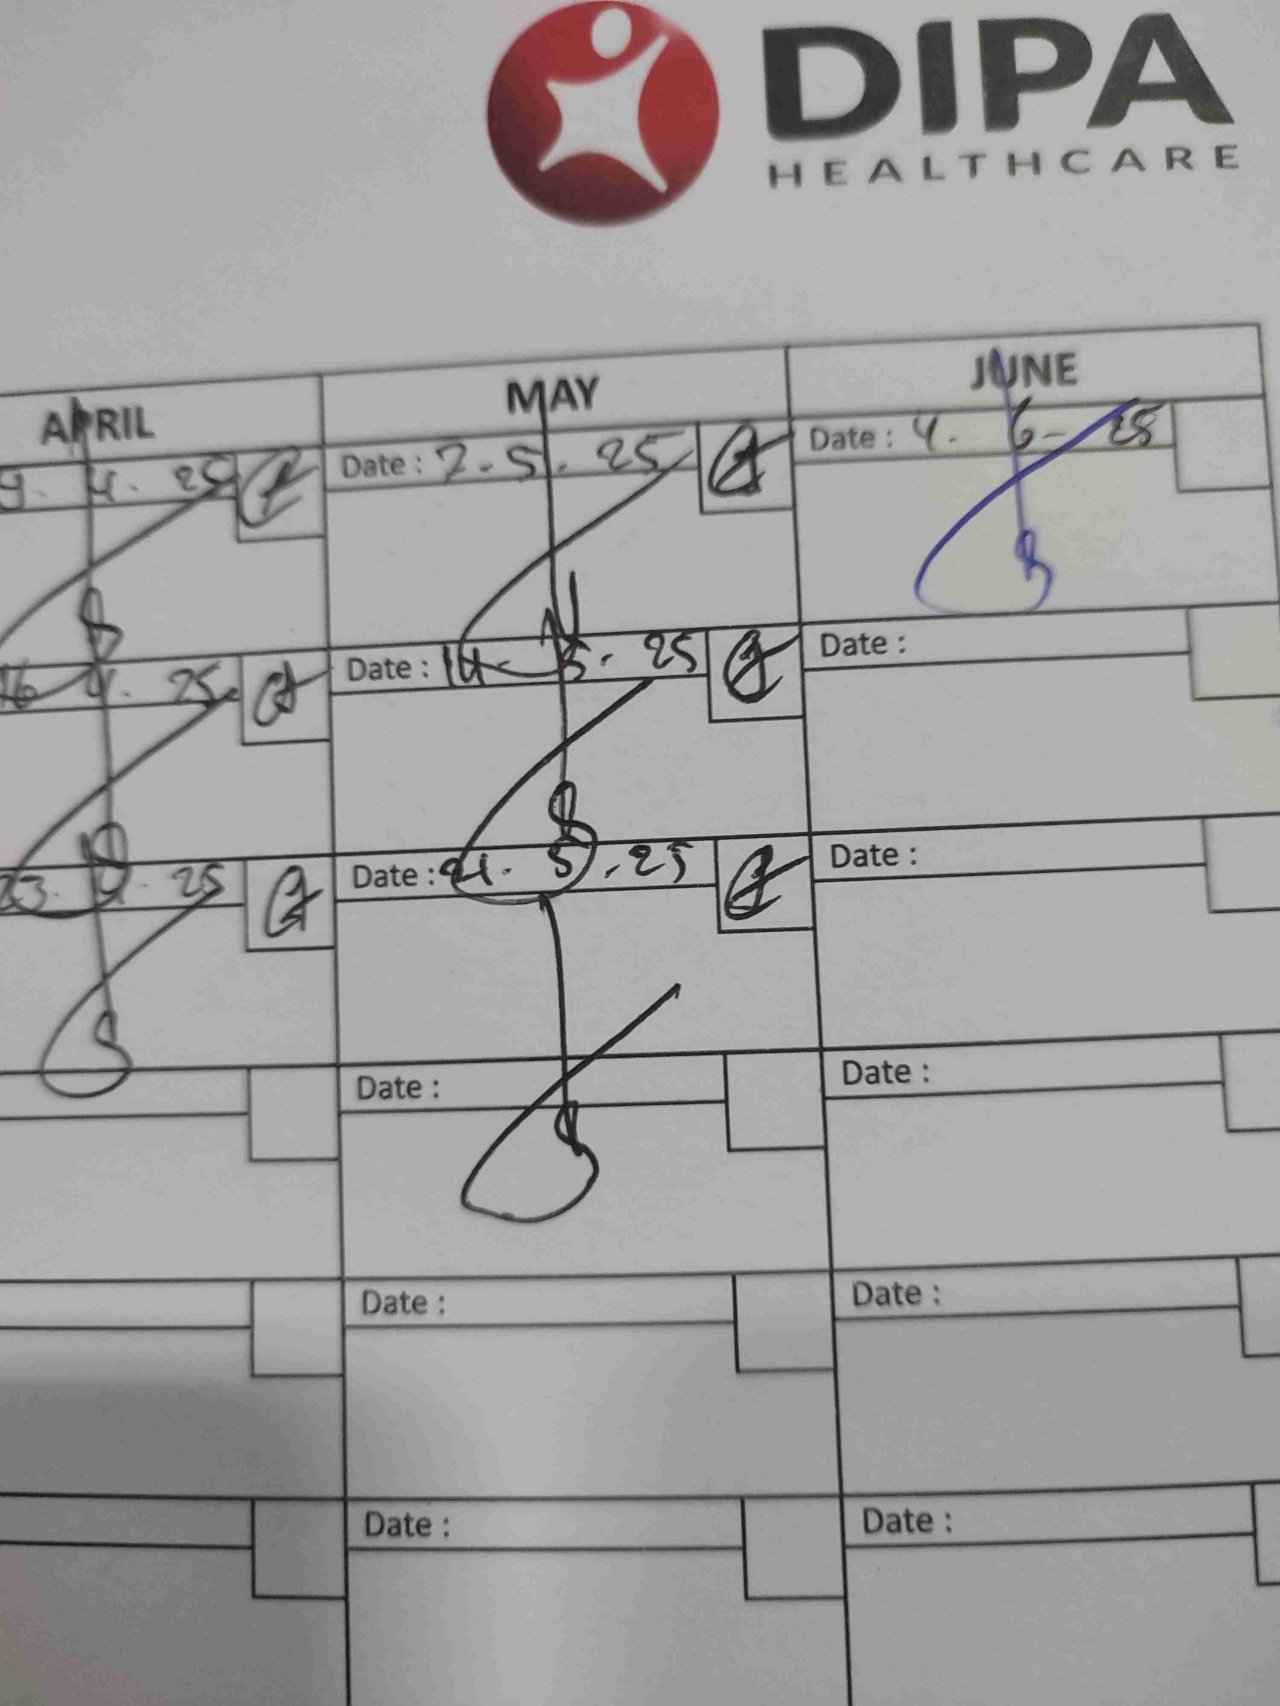 DIPA
HEALTHCARE
APRIL MAY JUNE
9. 4. 25 Date : 7.5.25 Date : 4. 6- 25
16 4. 25 Date : 14- 5. 25 Date :
23. 4. 25 Date : 21. 5. 25 Date :
Date : Date :
Date : Date :
Date : Date :